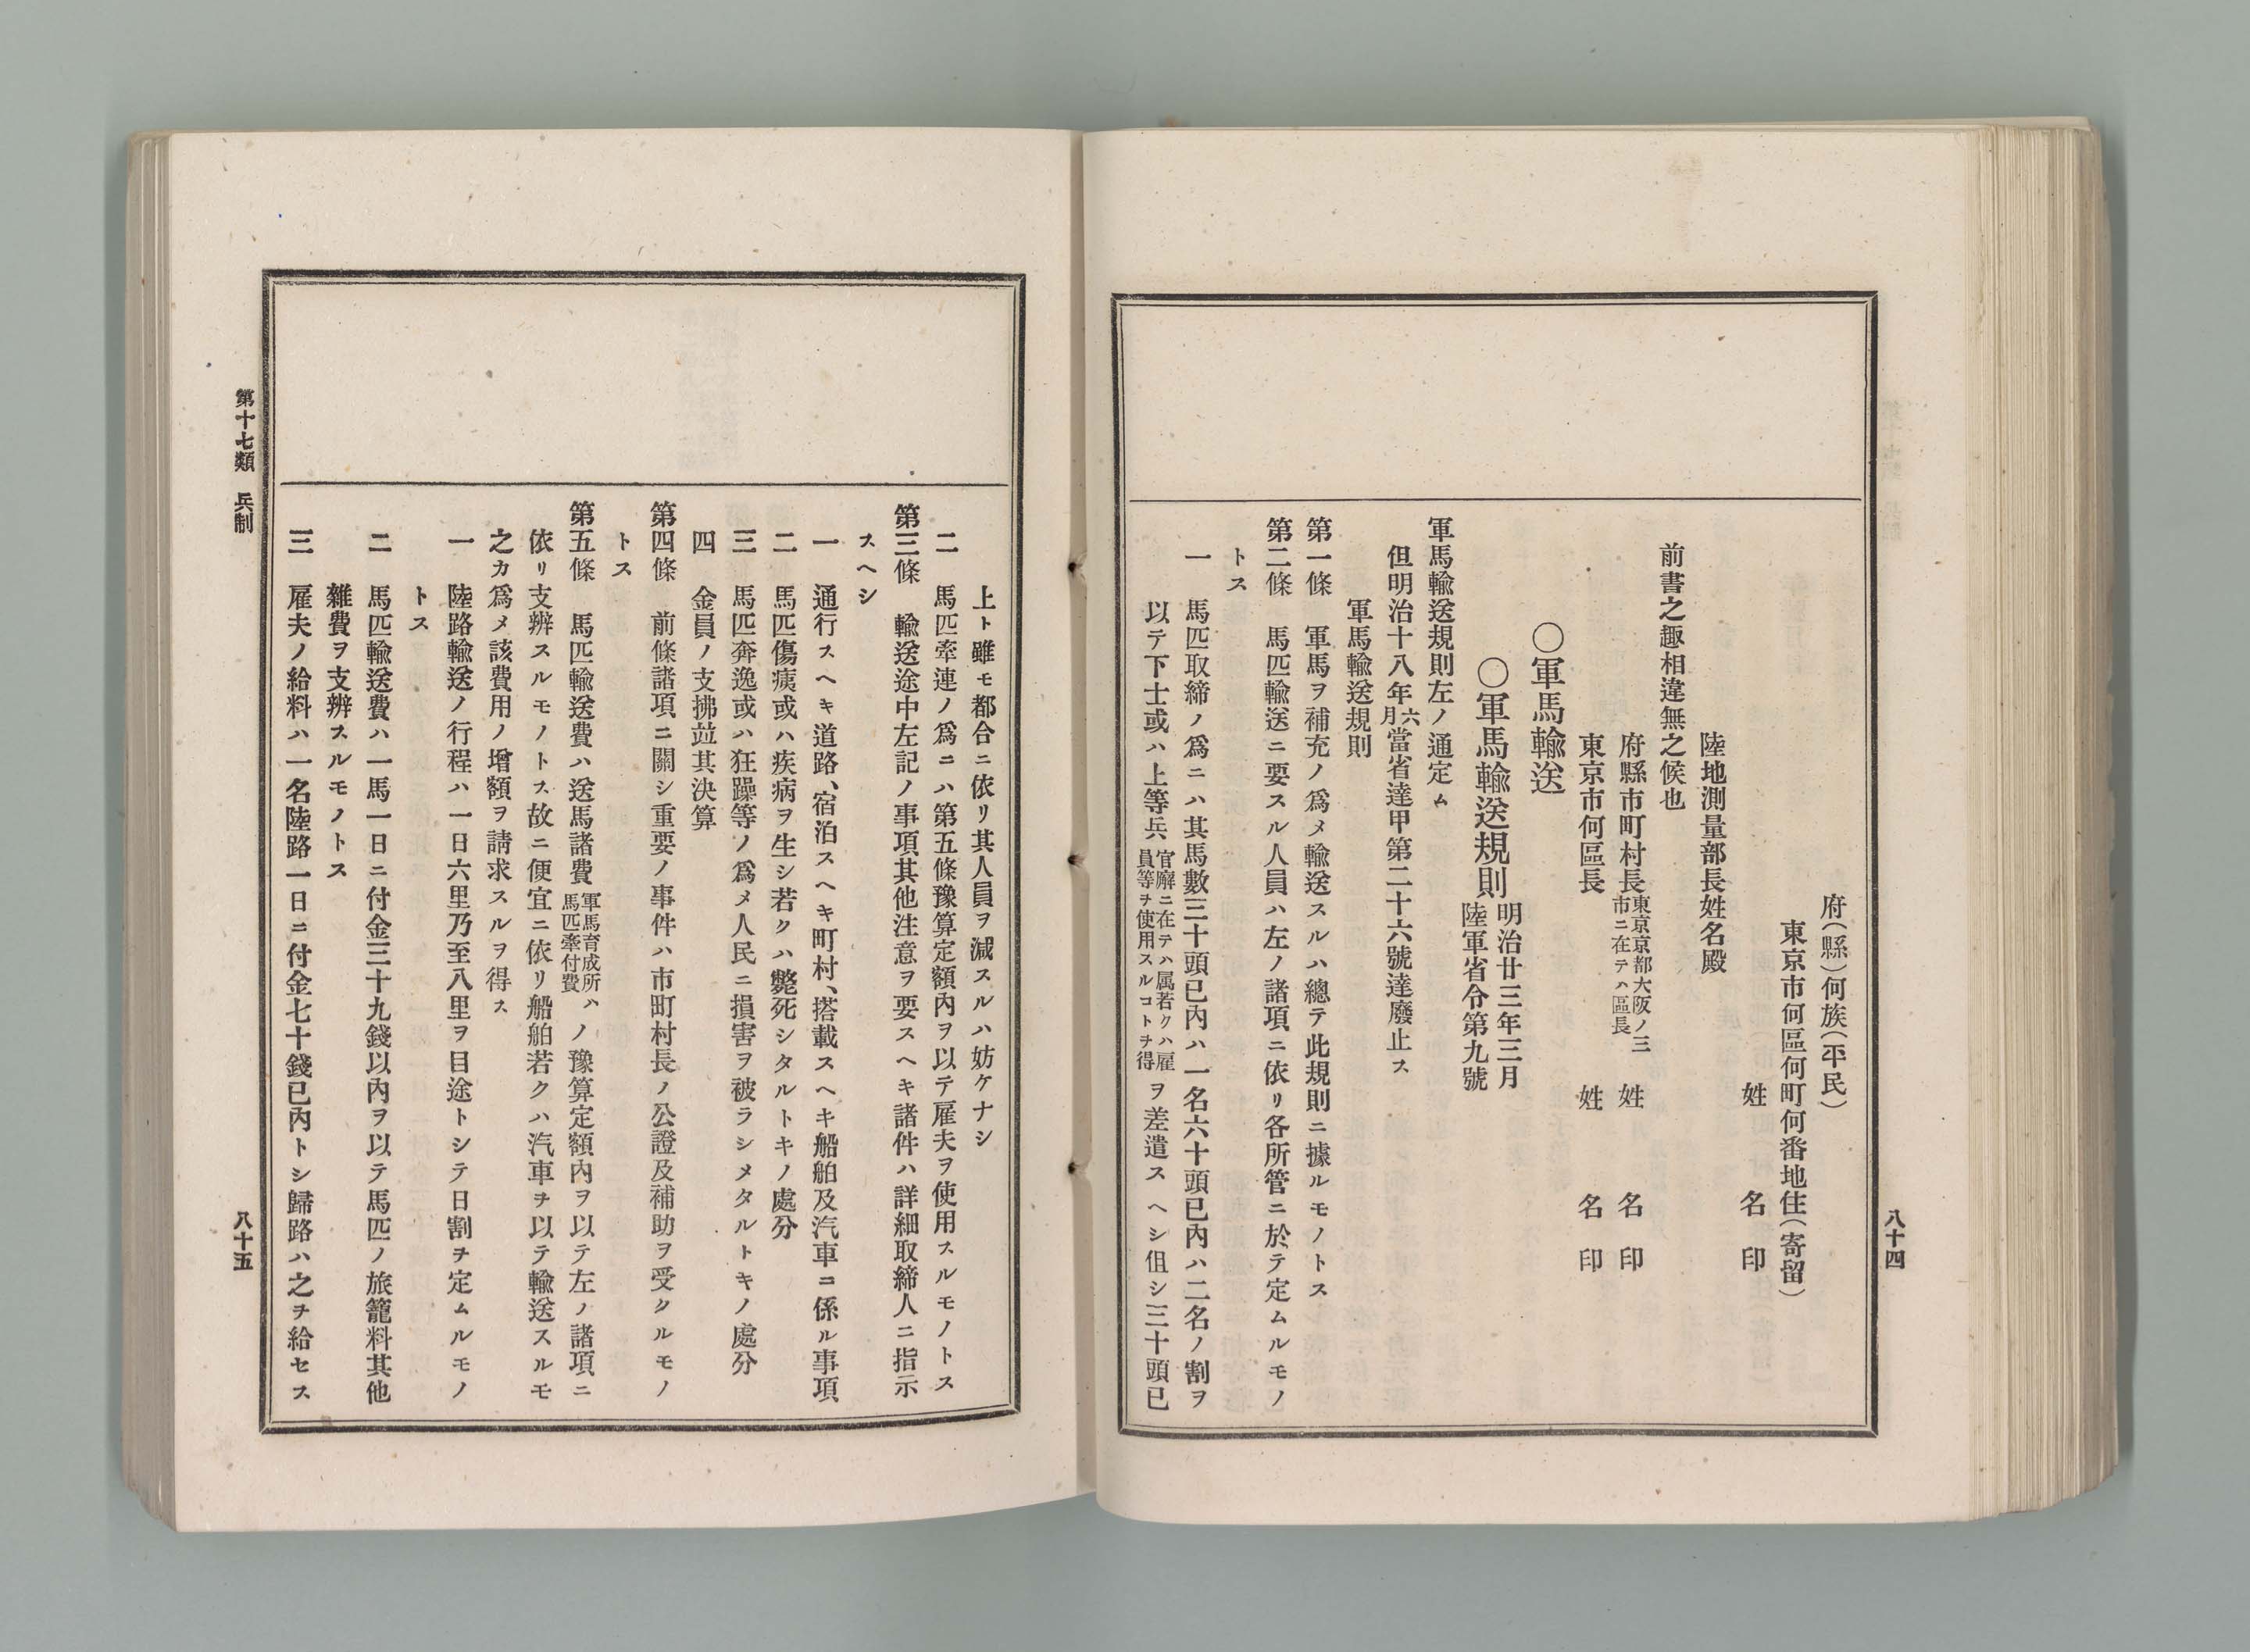 八十四
府(縣)何族(平民)
東京市何區何町何番地住(寄留)
姓　名　印
陸地測量部長姓名殿
前書之趣相違無之候也
府縣市町村長東京京都大阪ノ三市ニ在テハ區長　姓　名　印
東京市何區長　姓　名　印
〇軍馬輸送
〇軍馬輸送規則明治廿三年三月陸軍省令第九號
軍馬輸送規則左ノ通定ム
但明治十八年六月當省達甲第二十六號達廢止ス
軍馬輸送規則
第一條　軍馬ヲ補充ノ爲メ輸送スルハ總テ此規則ニ據ルモノトス
第二條　馬匹輸送ニ要スル人員ハ左ノ諸項ニ依リ各所管ニ於テ定ムルモノ
トス
一　馬匹取締ノ爲ニハ其馬數三十頭已內ハ一名六十頭已內ハ二名ノ割ヲ
以テ下士或ハ上等兵官廨ニ在テハ属若クハ雇員等ヲ使用スルコトヲ得ヲ差遣スヘシ伹シ三十頭已
上ト雖モ都合ニ依リ其人員ヲ減スルハ妨ケナシ
二　馬匹牽連ノ爲ニハ第五條豫算定額內ヲ以テ雇夫ヲ使用スルモノトス
第三條　輸送途中左記ノ事項其他注意ヲ要スヘキ諸件ハ詳細取締人ニ指示
スヘシ
一　通行スヘキ道路、宿泊スヘキ町村、搭載スヘキ船舶及汽車ニ係ル事項
二　馬匹傷痍或ハ疾病ヲ生シ若クハ斃死シタルトキノ處分
三　馬匹奔逸或ハ狂躁等ノ爲メ人民ニ損害ヲ被ラシメタルトキノ處分
四　金員ノ支拂竝其決算
第四條　前條諸項ニ關シ重要ノ事件ハ市町村長ノ公證及補助ヲ受クルモノ
トス
第五條　馬匹輸送費ハ送馬諸費軍馬育成所ハ馬匹牽付費ノ豫算定額內ヲ以テ左ノ諸項ニ
依リ支辨スルモノトス故ニ便宜ニ依リ船舶若クハ汽車ヲ以テ輸送スルモ
之カ爲メ該費用ノ增額ヲ請求スルヲ得ス
一　陸路輸送ノ行程ハ一日六里乃至八里ヲ目途トシテ日割ヲ定ムルモノ
トス
二　馬匹輸送費ハ一馬一日ニ付金三十九錢以內ヲ以テ馬匹ノ旅籠料其他
雜費ヲ支辨スルモノトス
三　雇夫ノ給料ハ一名陸路一日ニ付金七十錢已內トシ歸路ハ之ヲ給セス
第十七類　兵制
八十五